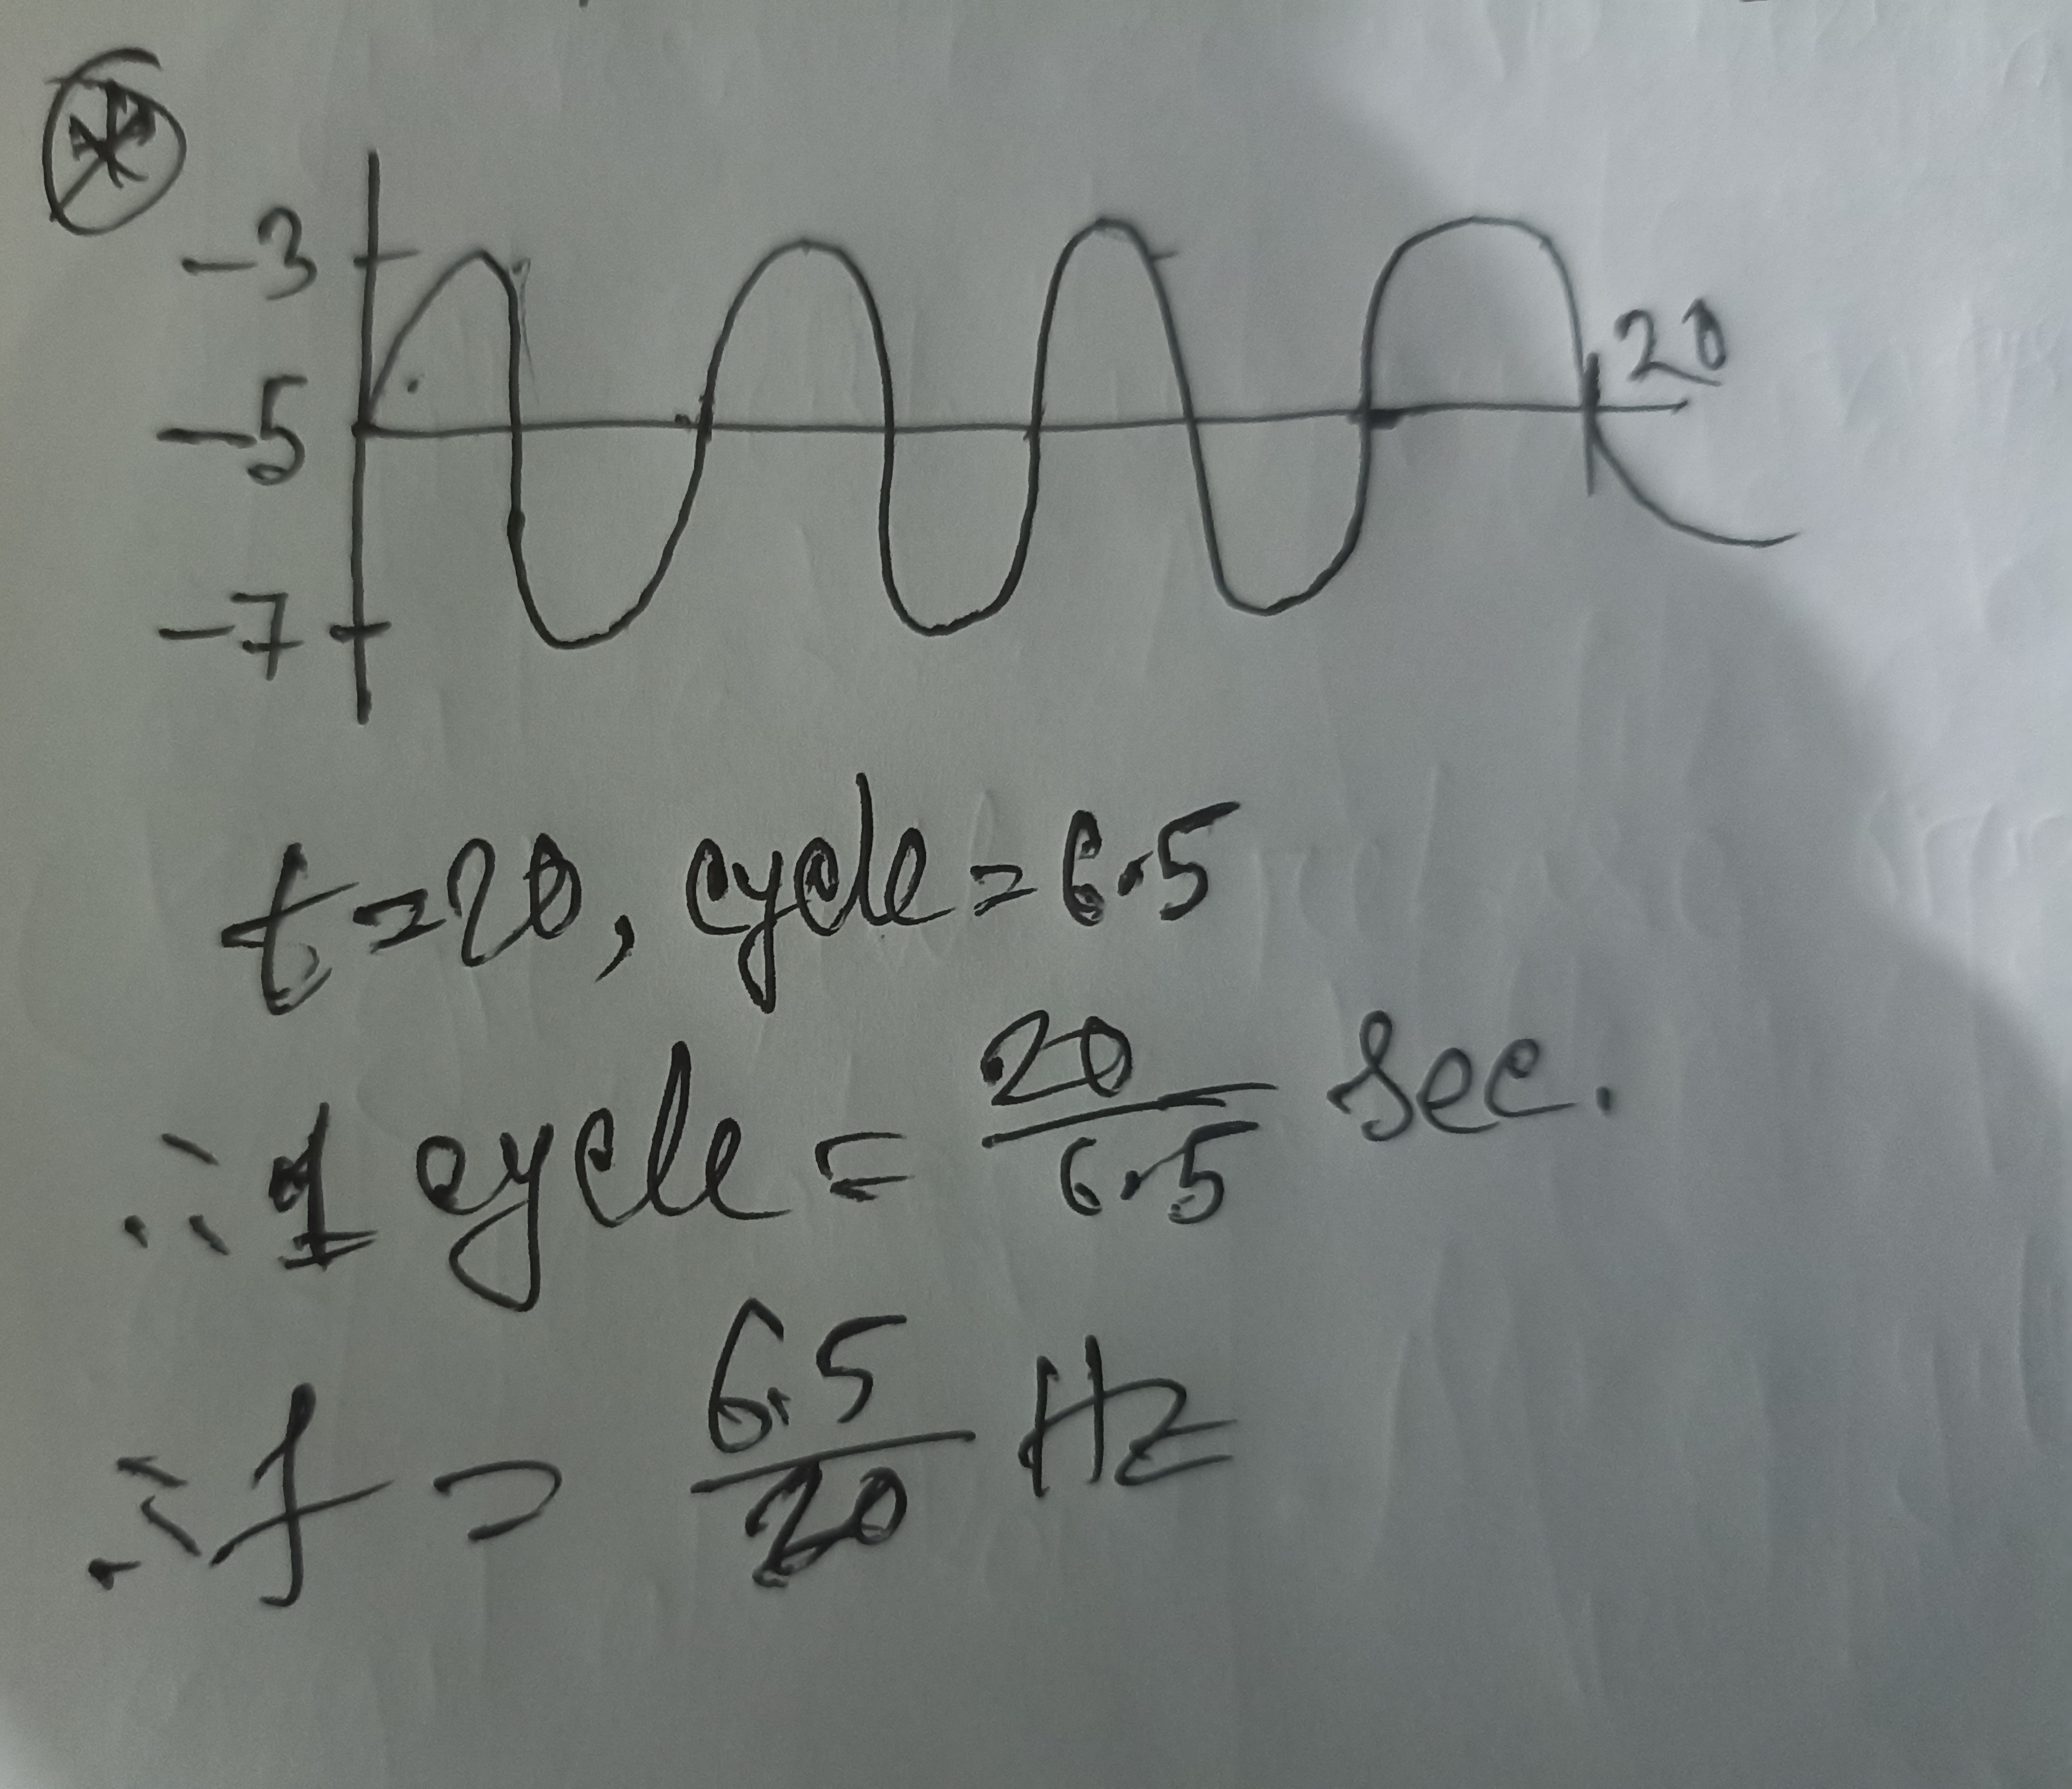 -3
20
-5
-7
t=20, cycle=6.5
∴ 1 cycle = 20/6.5 sec.
∴ f = 6.5/20 Hz